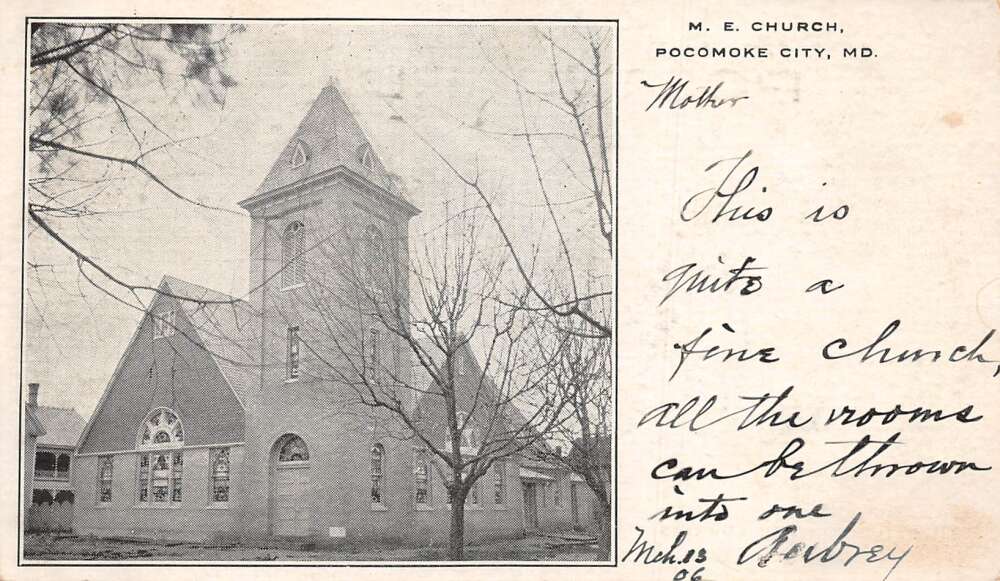 M. E. CHURCH,
POCOMOKE CITY, MD.
Mother
This is
quite a
fine church,
all the rooms
can be thrown
into one
Mch. 13 Aubrey
06